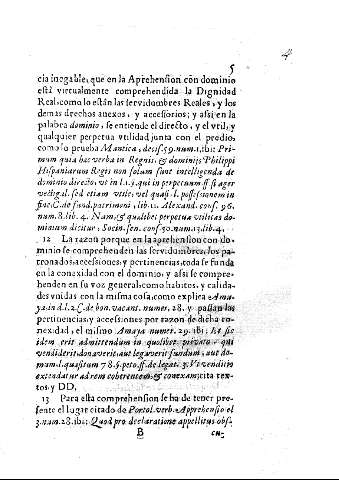 5
cia inegable, que en la Aprehension cõn dominio
està virtualmente comprehendida la Dignidad
Real, como lo están las servidumbres Reales, y los
demàs drechos anexos, y accessorios; y assi en la
palabra dominio, se entiende el directo, y el vtil, y
qualquier perpetua vtilidad junta con el predio,
como lo prueba Mantica, decis. 59. num. 1. ibi: Pri-
mum quia hæc verba in Regnis, & dominijs Philippi
Hispaniarum Regis non solum sunt intelligenda de
dominio directo, ut in l. 1. ff. si ager
vectig. l. sed etiam vtile; vel quasi l. possessionem in
C. de fund. patrimoni, lib. 11. Alexand. conf. 96.
num. 8. lib. 4. Nam, & qualibet perpetua vtilitas do-
minium dicitur; Socin. sen. conf. 50. num. 13. lib. 4.
12 La razon porque en la aprehension con do-
minio se comprehenden las servidumbres, los pa-
tronados, accessiones, y pertinencias, toda se funda
en la conexidad con el dominio, y assi se compre-
henden en su voz general, como habitos, y calida-
des vnidas con la misma cosa, como explica Ama-
ya in d. l. 2. C. de bon. vacant. numer. 28. y passan las
pertinencias, y accessiones por razon de dicha co-
nexidad, el mismo Amaya numer. 29. ibi: Et sic
idem erit admittendum in quolibet privato qui
vendiderit donaverit, aut legaverit fundum, aut do-
mum l. quæsitum 78. §. peto, ff. de legat. 3. Vt venditio
extendatur ad rem coherentem, & conexam; cita tex-
tos, y DD.
13 Para esta comprehension se ha de tener pre-
sente el lugar citado de Portol. verb. Apprehensio el
3. num. 28. ibi: Quod pro declaratione appellitus obs-
B